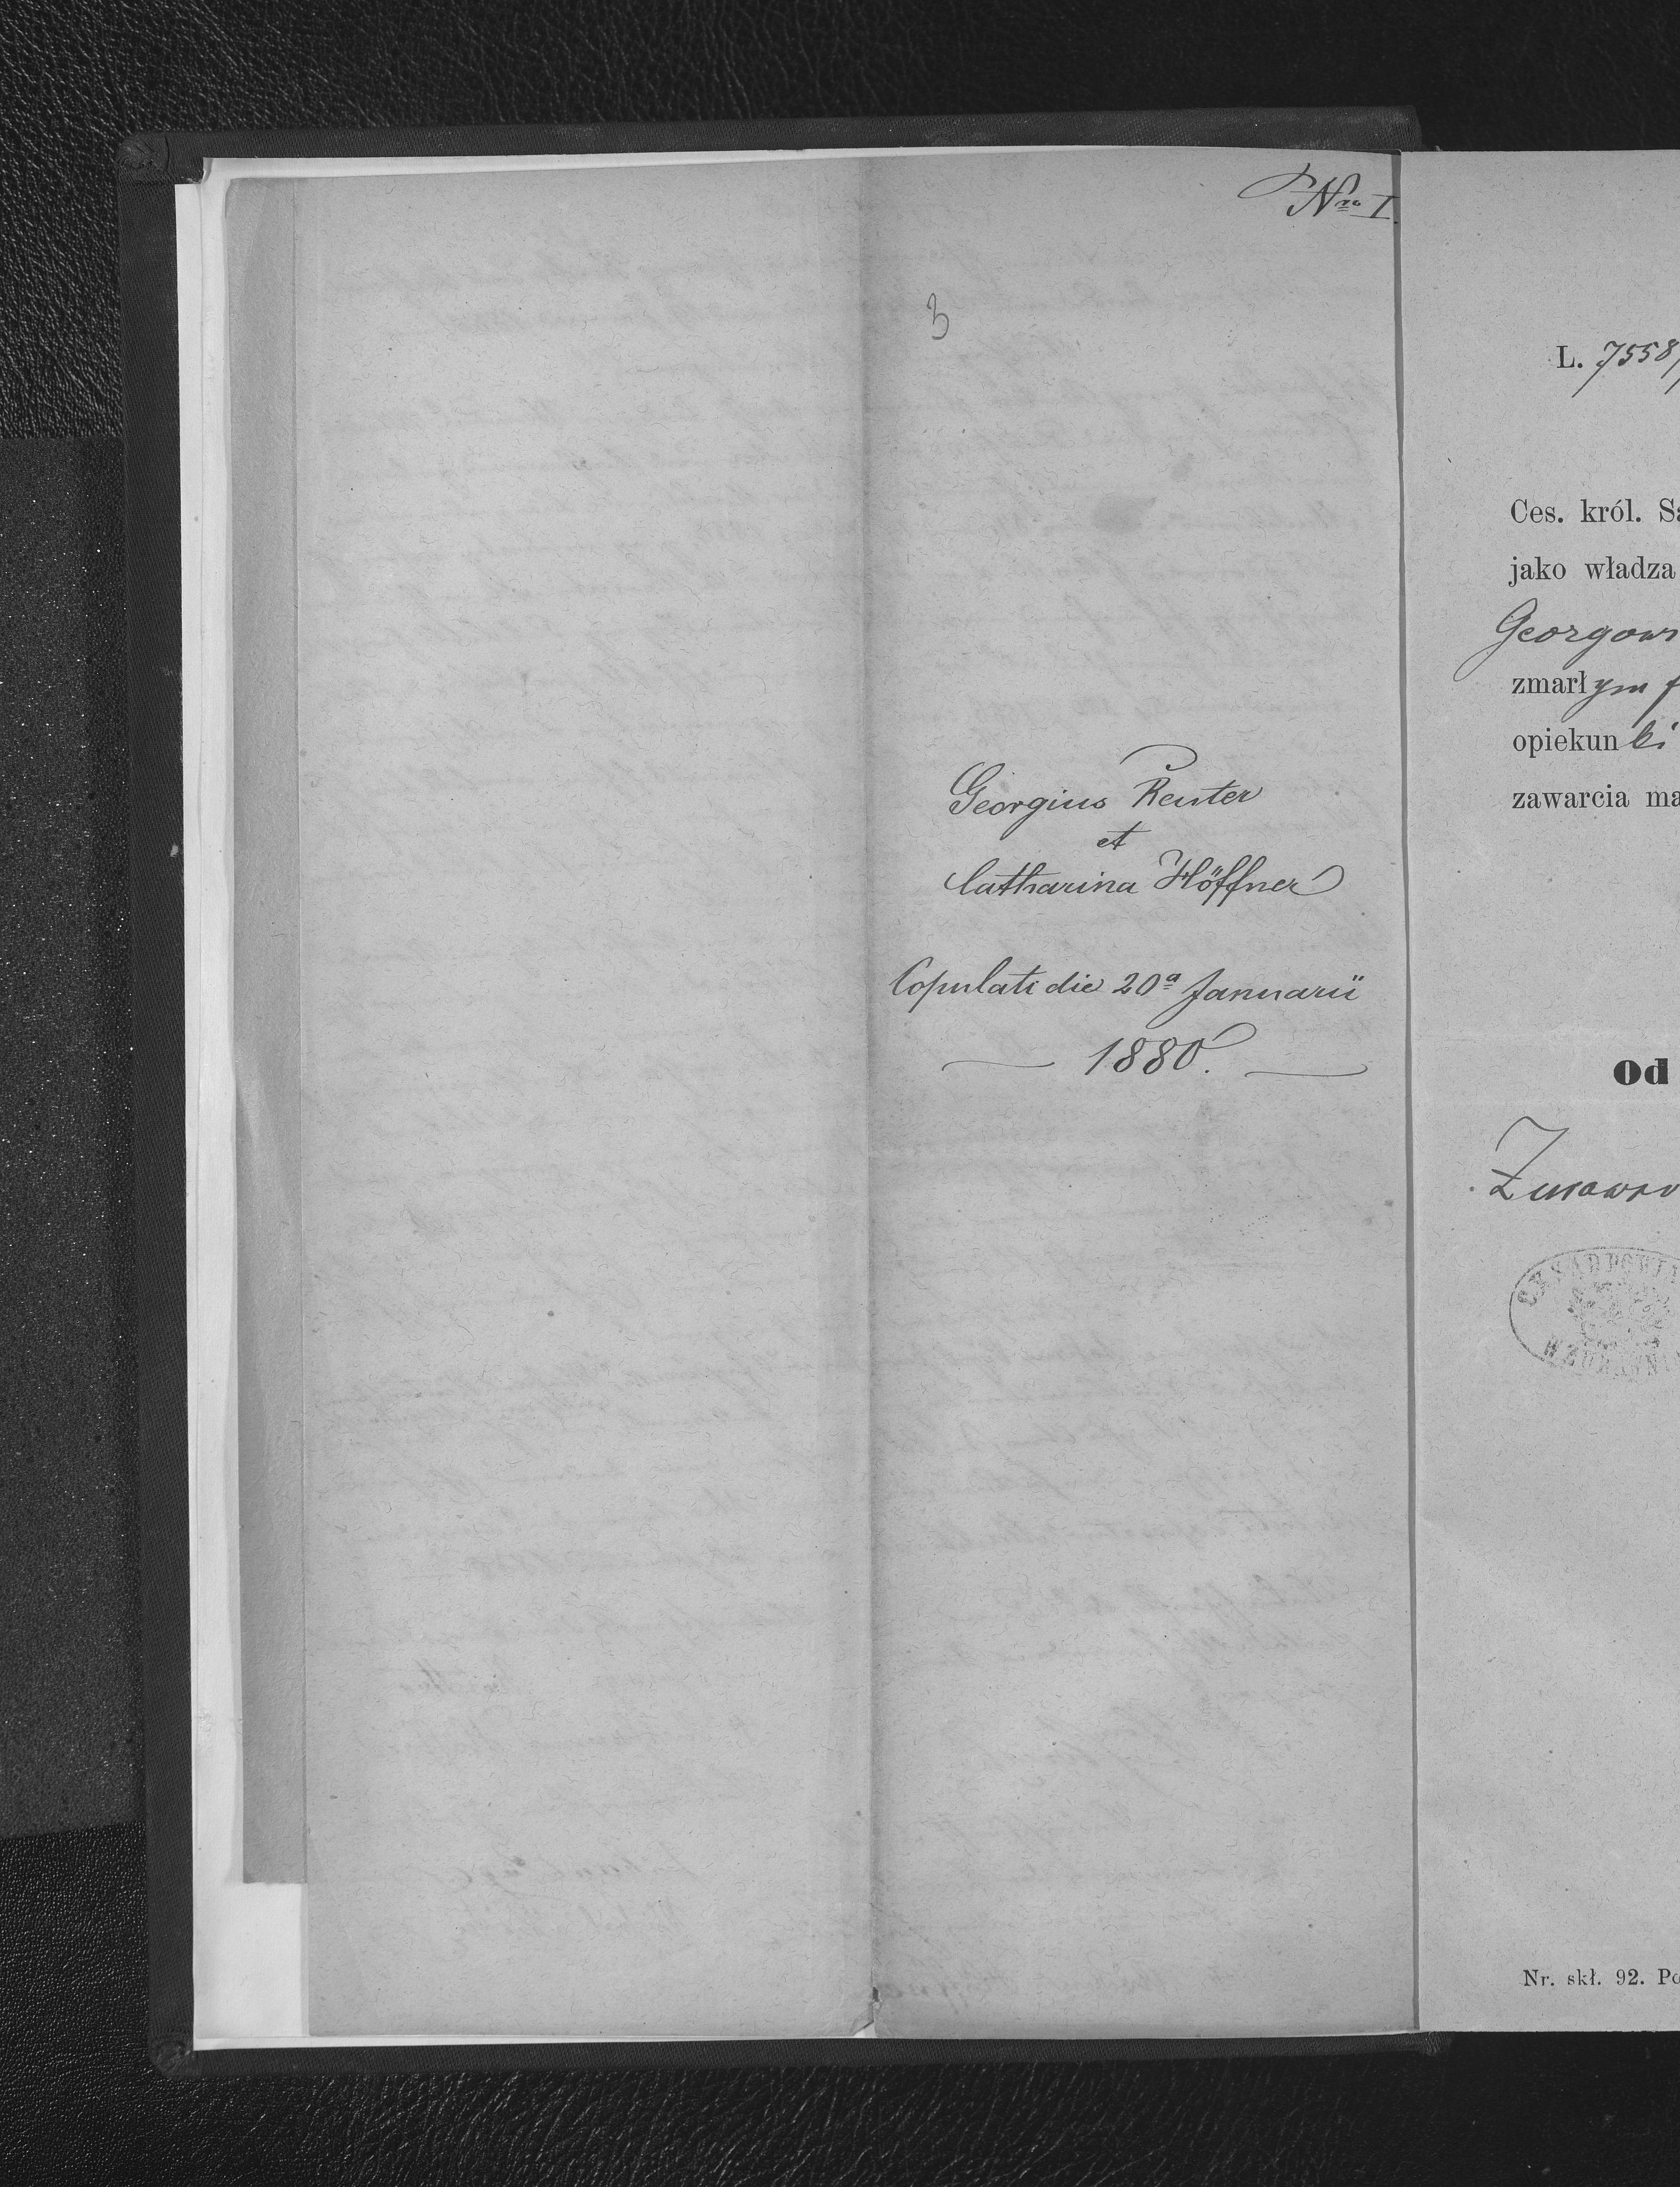 Nro I.
3
Georgius Reuter
et
Catharina Höffner
Copulati die 20a Januarii
1880.
L. 7558/
Ces. król. Są
jako władza
Georgowi
zmarłym
opiekunki
zawarcia ma
Od
Nr. skł. 92. Po